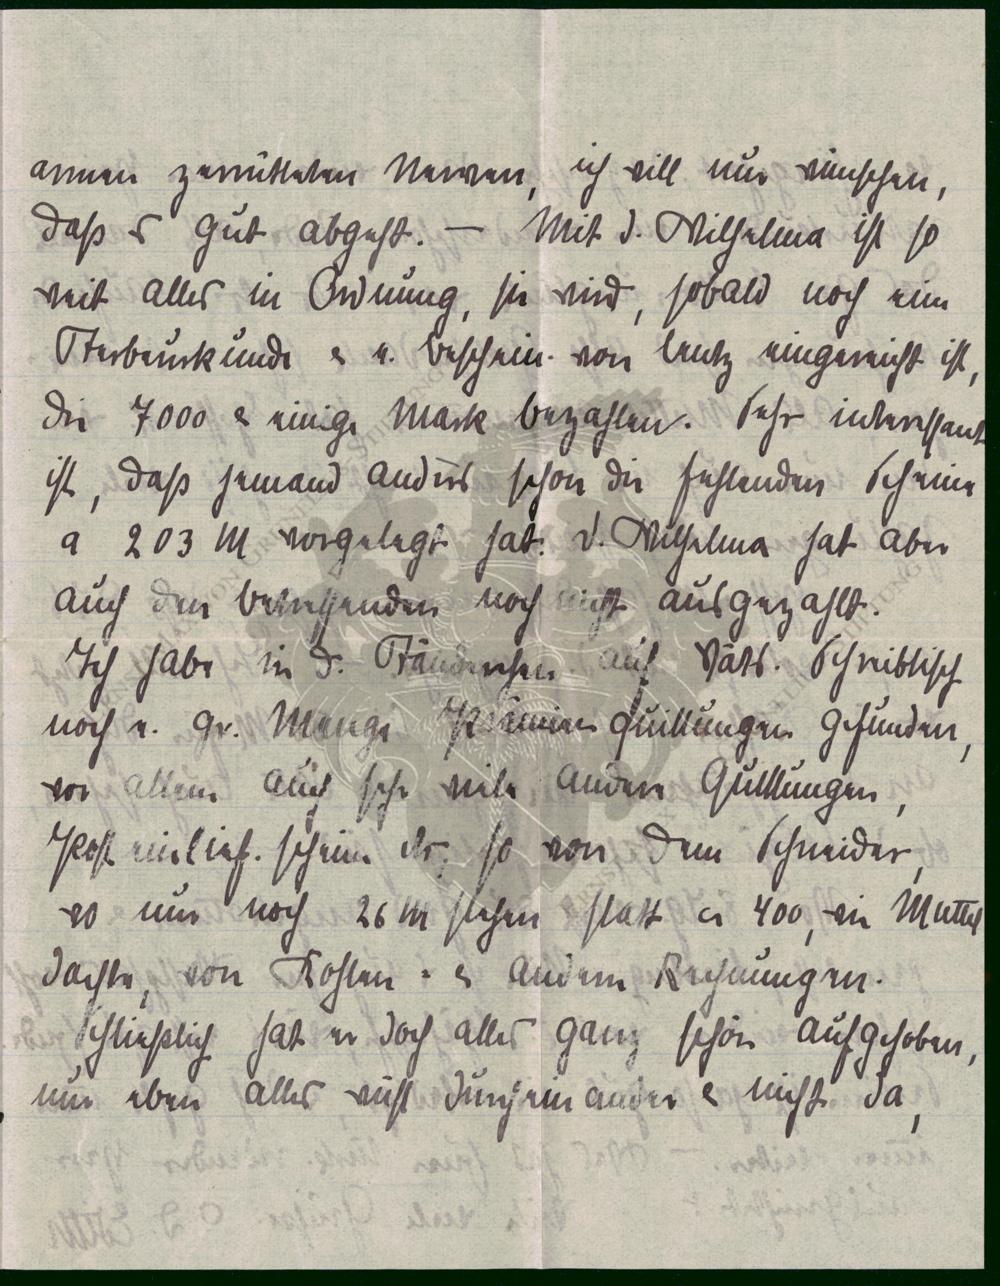 armen zerrütteten Nerven, ich will nur wünschen,
daß es gut abgeht. — Mit d. Wilhelma ist so
weit alles in Ordnung, sie wird, sobald noch eine
Sterbeurkunde & e. Beschein. von Lentz eingereicht ist,
die 7000 & einige Mark bezahlen. Sehr interessant
ist, daß jemand anders schon die fehlenden Scheine
a 203 M vorgelegt hat. d. Wilhelma hat aber
auch den betreffenden noch nicht ausgezahlt.
Ich habe in d. Ständerchen auf Väts. Schreibtisch
noch e. gr. Menge Prämienquittungen gefunden,
vor allem auch sehr viele andere Quittungen,
Posteinlief.scheine etc. so von dem Schneider,
wo nur noch 26 M stehen statt ca 400, wie Mutti
dachte, von Kohlen - & andern Rechnungen.
Schließlich hat er doch alles ganz schön aufgehoben,
nur eben alles wüst durcheinander & nicht da,